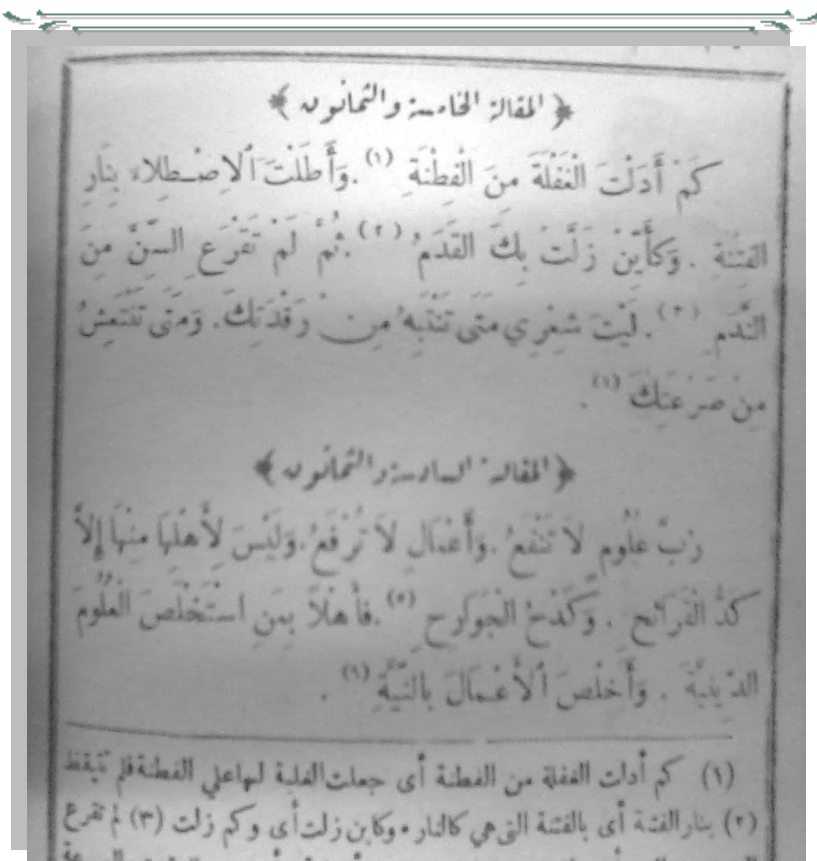 ﴿ المقالة الخامسة والثمانون ﴾
كَمْ أَدَلْتَ الْغَفْلَةَ مِنَ الْفِطْنَةِ (١) . وَأَطَلْتَ الِاصْطِلَاءَ بِنَارِ
الفِتْنَةِ . وَكَأَيِّنْ زَلَّتْ بِكَ القَدَمُ (٢) . ثُمَّ لَمْ تَقْرَعِ السِّنَّ مِنَ
النَّدَمِ (٣) . لَيْتَ شِعْرِي مَتَى تَنْتَبِهُ مِنْ رَقْدَتِكَ . وَمَتَى تَنْتَعِشُ
مِنْ صَرْعَتِكَ (٤) .
﴿ المقالة السادسة والثمانون ﴾
رُبَّ عُلُومٍ لاَ تَنْفَعُ . وَأَعْمَالٍ لاَ تُرْفَعُ . وَلَيْسَ لِأَهْلِهَا مِنْهَا إِلاَّ
كَدُّ الْقَرَائِحِ . وَكَدْحُ الْجَوَارِحِ (٥) . فَأَهْلاً بِمَنِ اسْتَخْلَصَ الْعُلُومَ
الدِّينِيَّةَ . وَأَخْلَصَ الْأَعْمَالَ بِالنِّيَّةِ (٦) .
(١) كم أدلت الغفلة من الفطنة أى جعلت الغلبة لها على الفطنة فلم تتيقظ
(٢) بنار الفتنة أى بالفتنة التى هى كالنار • وكاين زلت أى وكم زلت (٣) لم تقرع